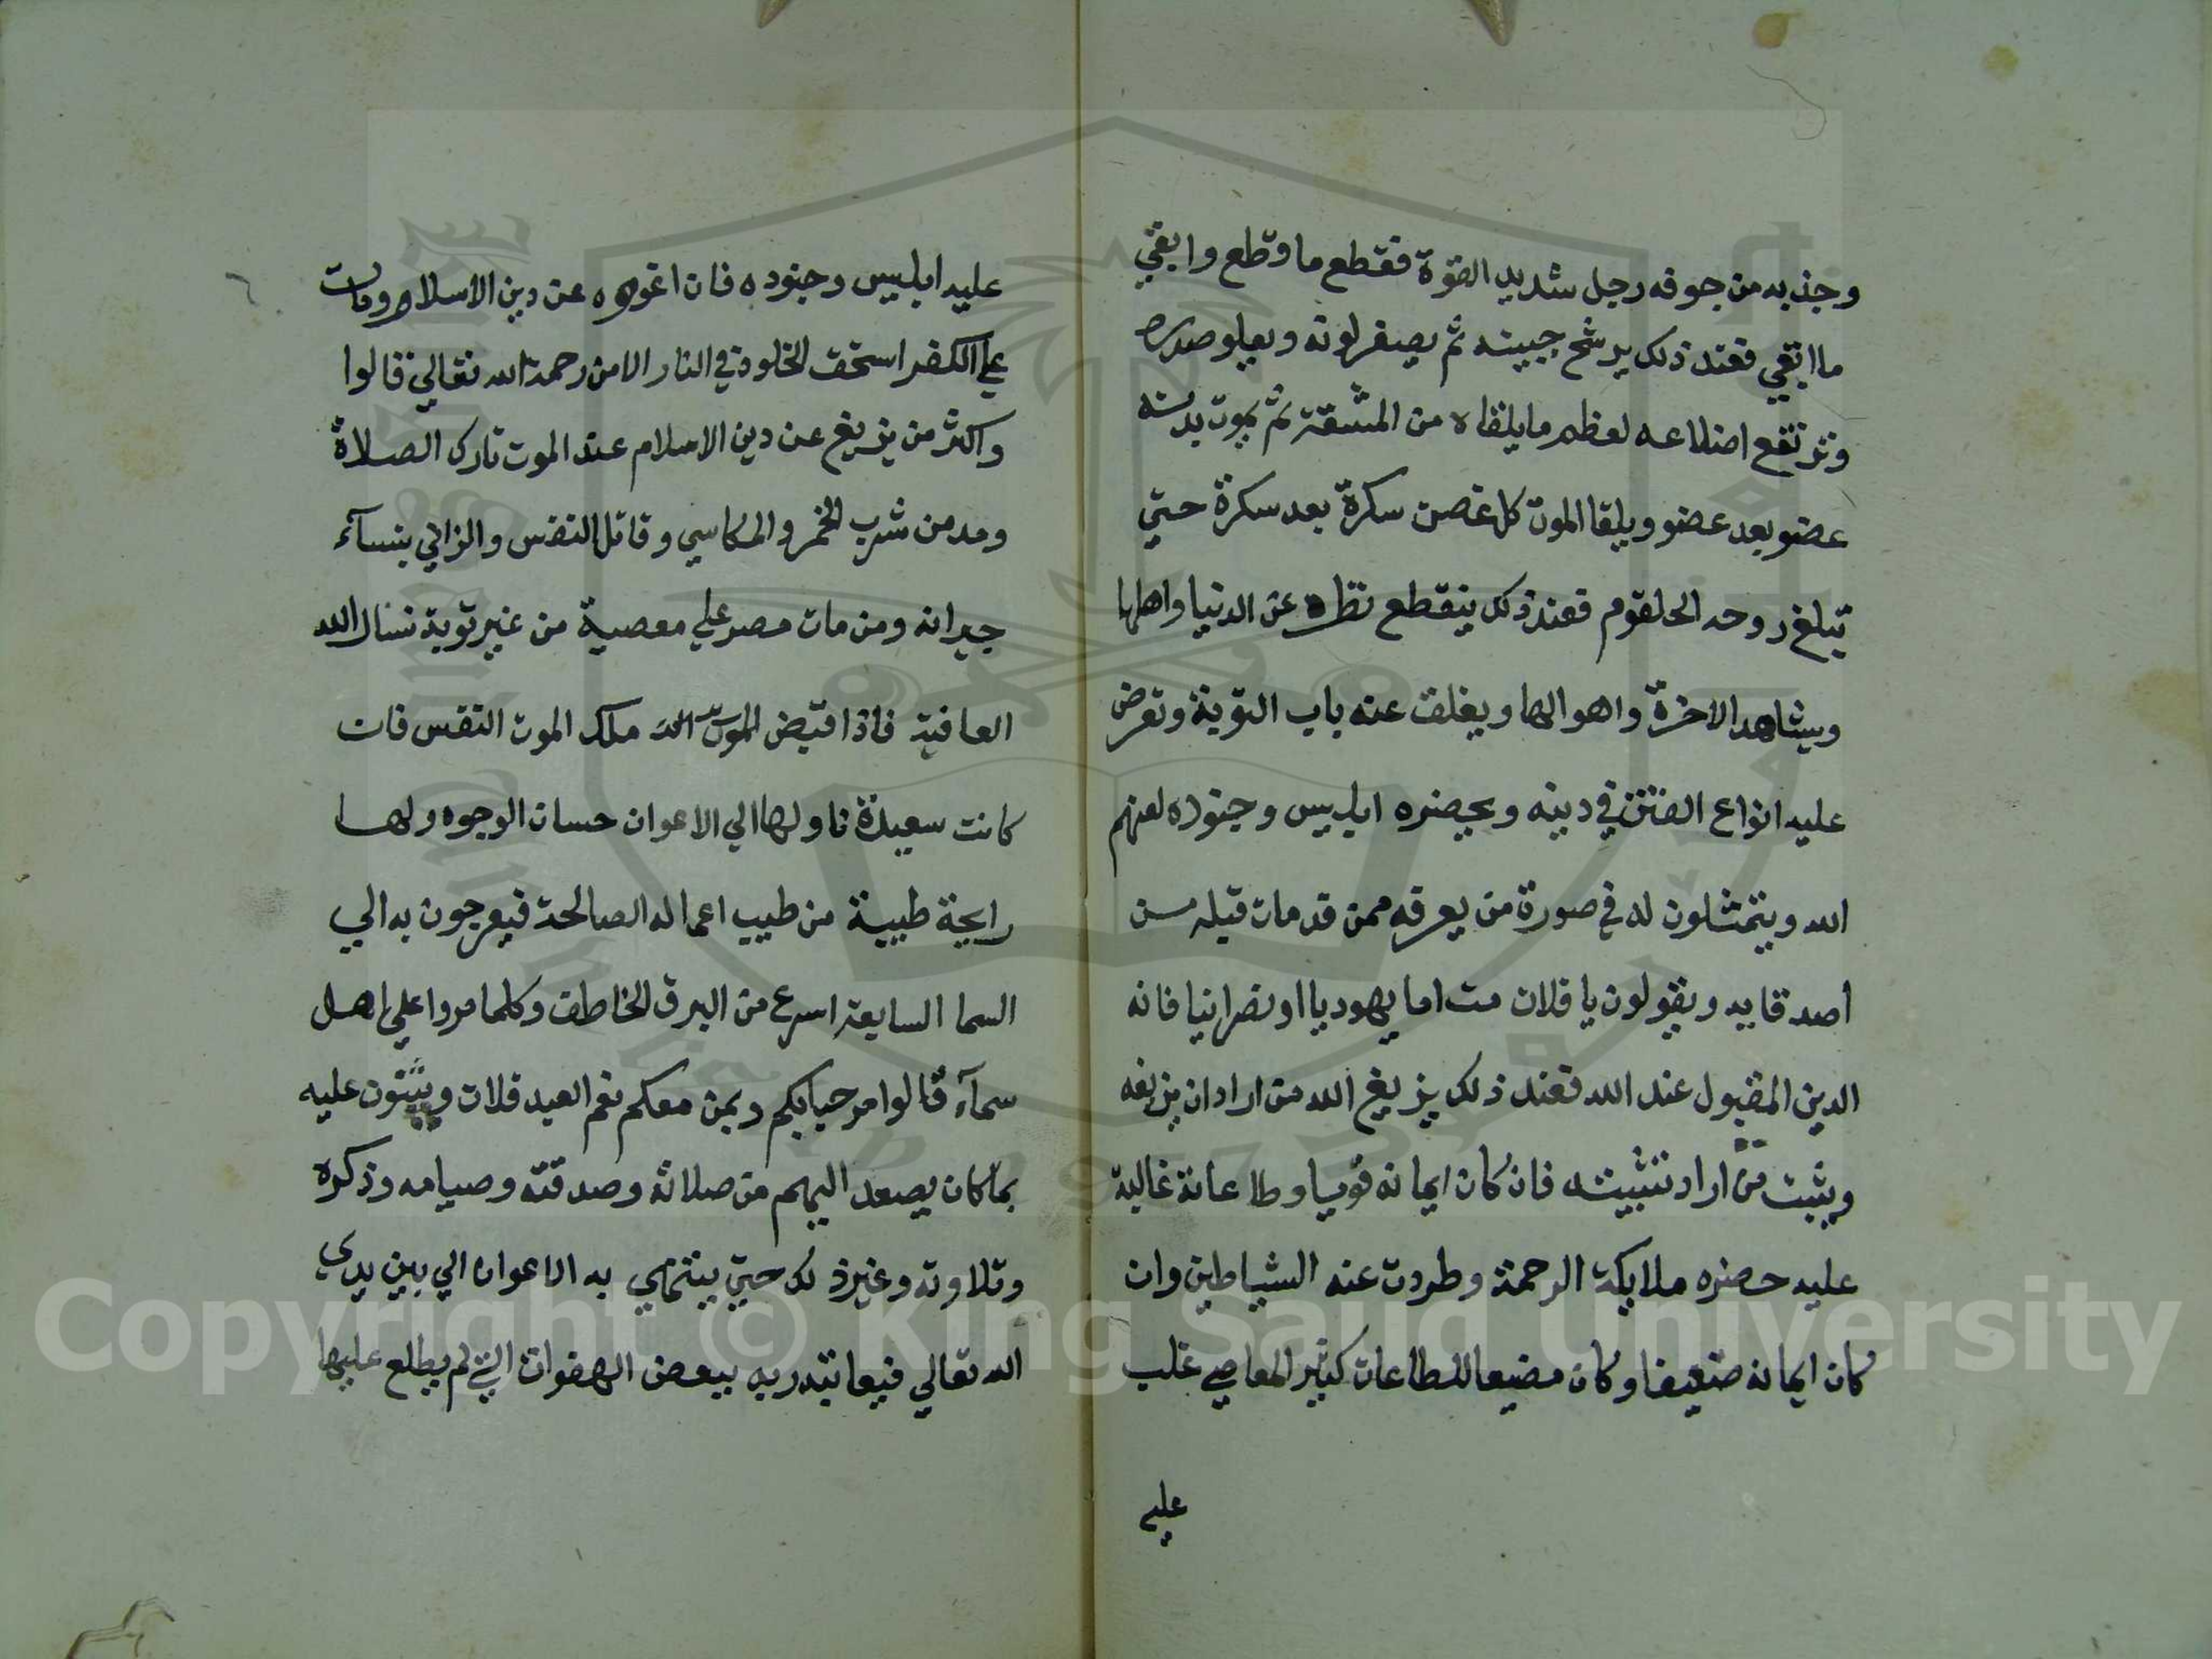 وجذبه من جوفه رجل شديد القوة فقطع ما وقطع وابقي
ما ابقي فعند ذلك يرشح جبينه ثم يصفر لونه ويعلو صدره
وترتفع اضلاعه لعظم ما يلقاه من المشقة ثم يموت بدنه
عضو بعد عضو ويلقا الموت كل غصن سكرة بعد سكرة حتي
تبلغ روحه الحلقوم فعند ذلك ينقطع نظره عن الدنيا واهلها
ويشاهد الاخرة واهوالها ويغلق عنه باب التوبة وتعرض
عليه انواع الفتن في دينه ويحضره ابليس وجنوده لعنهم
الله ويتمثلون له في صورة من يعرفه ممن قد مات قبله من
اصدقايه ويقولون يا فلان مت اما يهوديا او نصرانيا فانه
الدين المقبول عند الله فعند ذلك يزيغ الله من اراد ان يزيغه
ويثبت من اراد تثبيته فان كان ايمانه قويا وطاعاته غالبة
عليه حضره ملايكة الرحمة وطردت عنه الشياطين وان
كان ايمانه ضعيفا وكان مضيعا للطاعات كثير المعاصي غلب
عليه
عليه ابليس وجنوده فان اغووه عن دين الاسلام ومات
علي الكفر استحق الخلود في النار الا من رحمة الله تعالي قالوا
واكثر من يزيغ عن دين الاسلام عند الموت تارك الصلاة
ومدمن شرب الخمر والمكاسي وقاتل النفس والزاني بنسآء
جيرانه ومن مات مصر علي معصية من غير توبة نسال الله
العافية فاذا قبض ملك الموت النفس فان
كانت سعيدة ناولها الي الاعوان حسان الوجوه ولها
رايحة طيبة من طيب اعماله الصالحة فيعرجون به الي
السما السابعة اسرع من البرق الخاطف وكلما مروا علي اهل
سمآء قالوا مرحبا بكم وبمن معكم نعم العبد فلان ويثنون عليه
بما كان يصعد اليهم من صلاته وصدقته وصيامه وذكره
وتلاوته وغير ذلك حتي ينتهي به الاعوان الي بين يدي
الله تعالي فيعاتبه ربه ببعض الهفوات التي لم يطلع عليها
Copyright © King Saud University